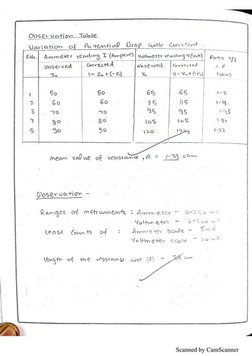 Observation Table
Variation of Potential Drop with Current
S.No Ammeter reading I (Ampere) Voltmeter reading V (volt) Ratio V/I
observed Corrected observed Corrected = R
I₀ I = I₀ + (-e) V₀ V = V₀ + (-e) (ohm)
1 50 50 65 65 1.3
2 60 60 85 85 1.4
3 70 70 95 95 1.35
4 80 80 105 105 1.31
5 90 90 120 120 1.33
mean value of resistance, R = 1.33 ohm
Observation -
Ranges of instruments : Ammeter -
Voltmeter -
Least Counts of : Ammeter scale - 5mA
Voltmeter scale -
length of the resistance wire (l) - cm
Scanned by CamScanner